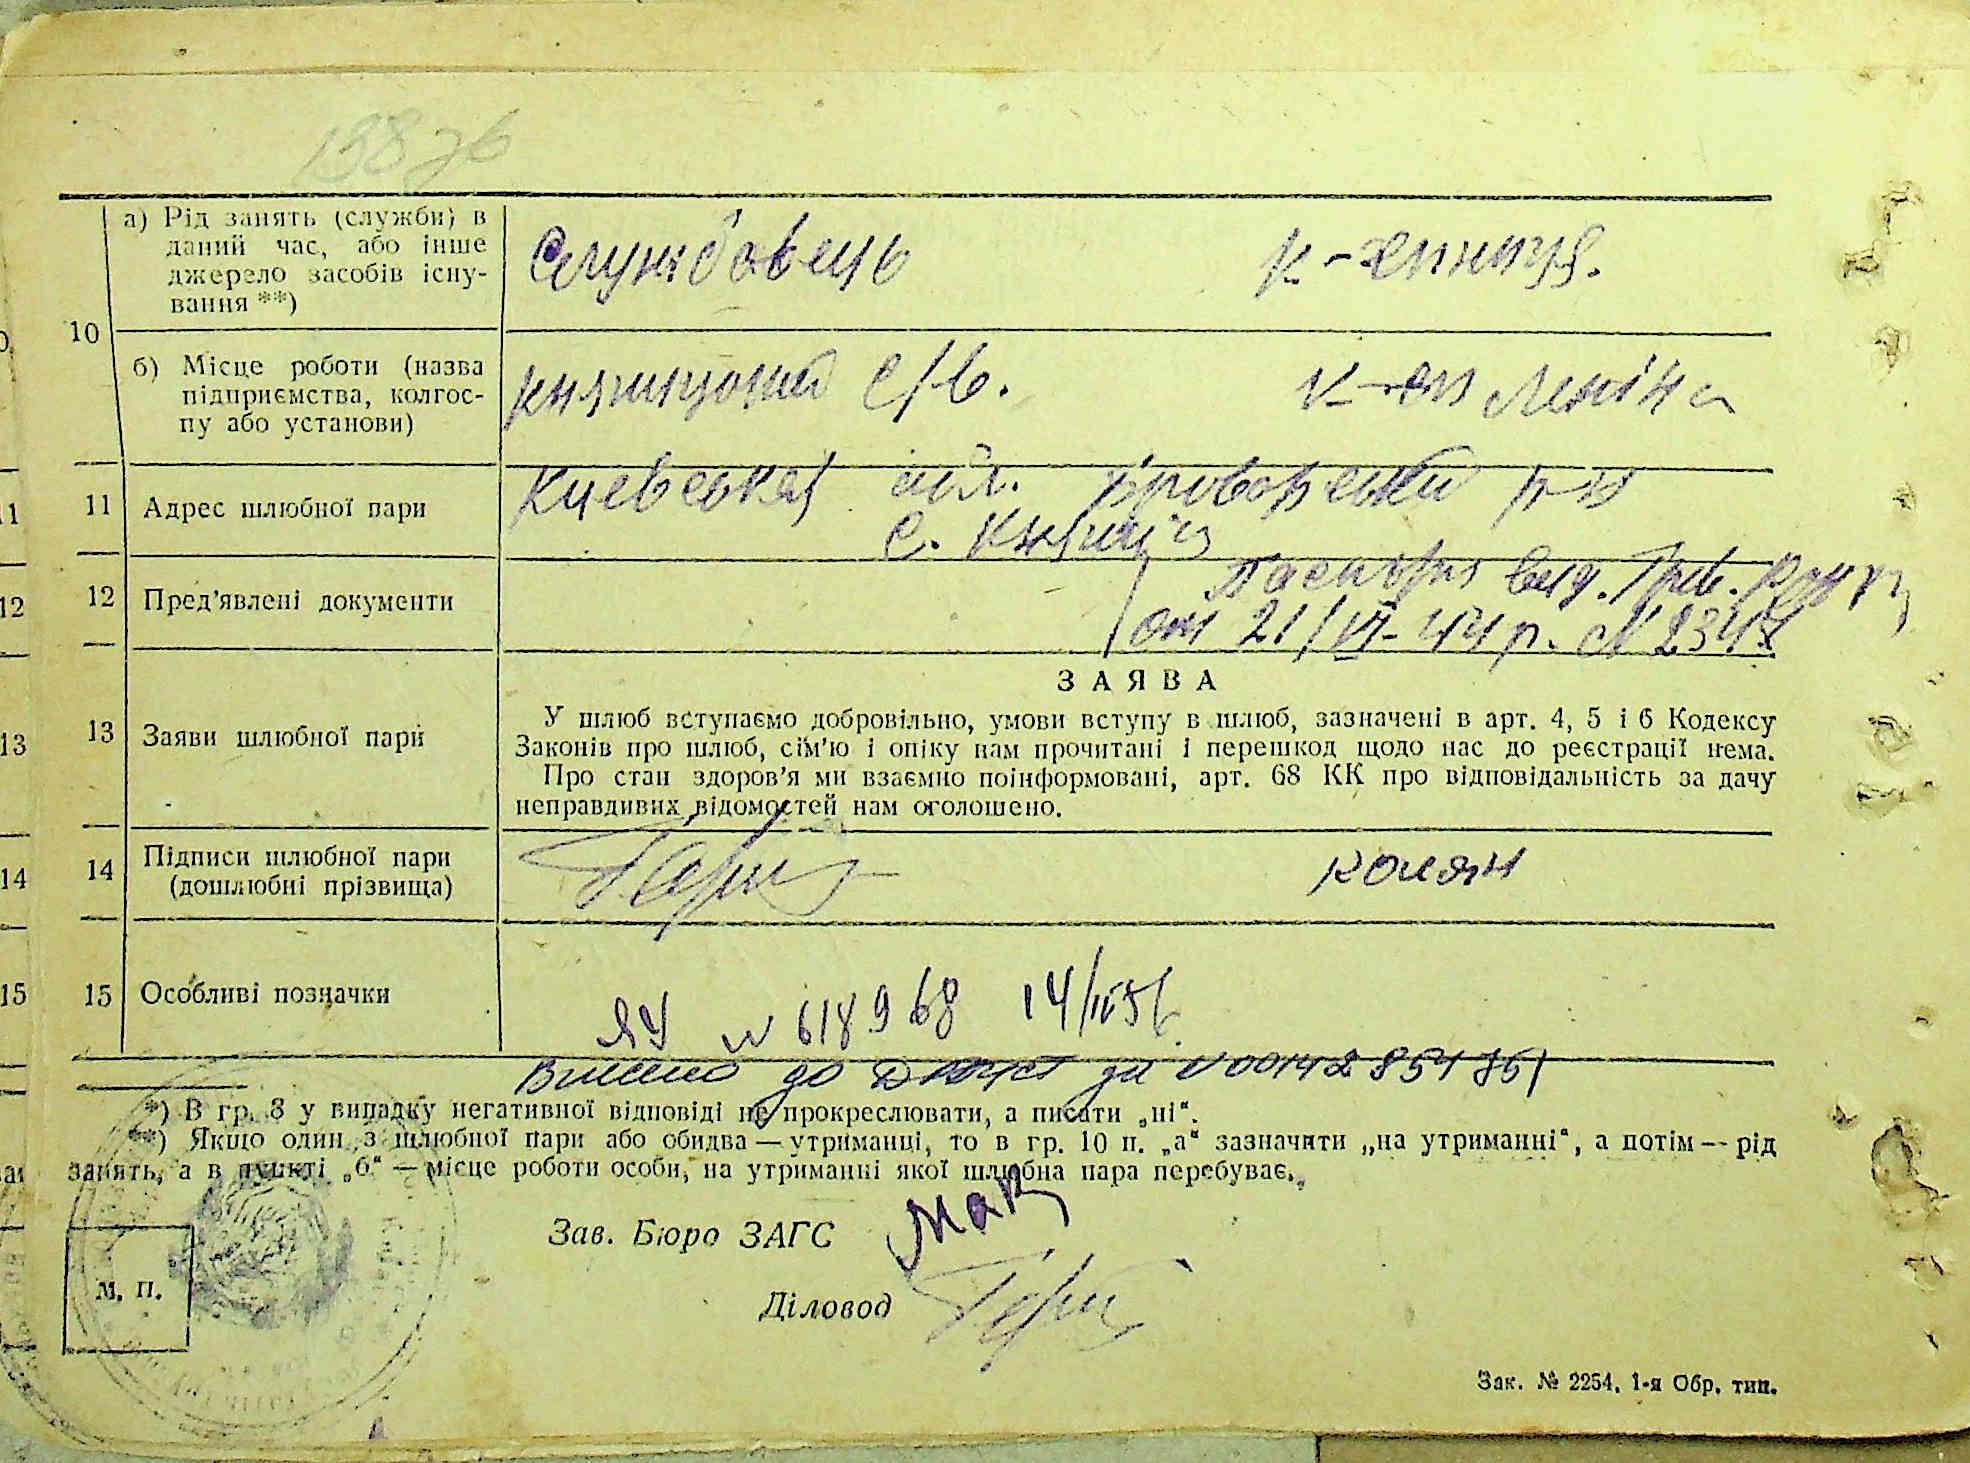 а) Рід занять (служби) в
даний час, або інше
джерело засобів існу-
вання **)
Службовець
к-
10
б) Місце роботи (назва
підприємства, колгос-
пу або установи)
с/в.
Леніна
11 Адрес шлюбної пари
Киевська обл. Броворський р-н
с. Княжичі
12 Пред’явлені документи
Паспорт вид.
от 21/VI-44 р. № 2347
ЗАЯВА
13 Заяви шлюбної пари
У шлюб вступаємо добровільно, умови вступу в шлюб, зазначені в арт. 4, 5 і 6 Кодексу
Законів про шлюб, сім’ю і опіку нам прочитані і перешкод щодо нас до реєстрації нема.
Про стан здоров’я ми взаємно поінформовані, арт. 68 КК про відповідальність за дачу
неправдивих відомостей нам оголошено.
14 Підписи шлюбної пари
(дошлюбні прізвища)
15 Особливі позначки
ЯУ № 618968
Внесено до ДРАЦСГ за №
*) В гр. 8 у випадку негативної відповіді не прокреслювати, а писати „ні“.
**) Якщо один з шлюбної пари або обидва — утриманці, то в гр. 10 п. „а“ зазначити „на утриманні“, а потім — рід
занять, а в пункті „б“ — місце роботи особи, на утриманні якої шлюбна пара перебуває.
Зав. Бюро ЗАГС
М. П.
Діловод
Зак. № 2254, 1-я Обр. тип.